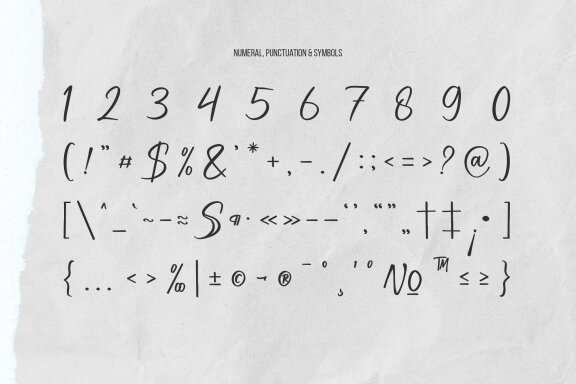 NUMERAL, PUNCTUATION & SYMBOLS
1 2 3 4 5 6 7 8 9 0
( ! " # $ % & ' * + , - . / : ; < = > ? @ )
[ \ ^ _ ` ~ – ≈ § ¶ · « » – — ‘ ’ ‚ “ ” „ † ‡ ¡ • ]
{ … ‹ › ‰ | ± © ¬ ® ¯ ° ¸ ' º № ™ ≤ ≥ }